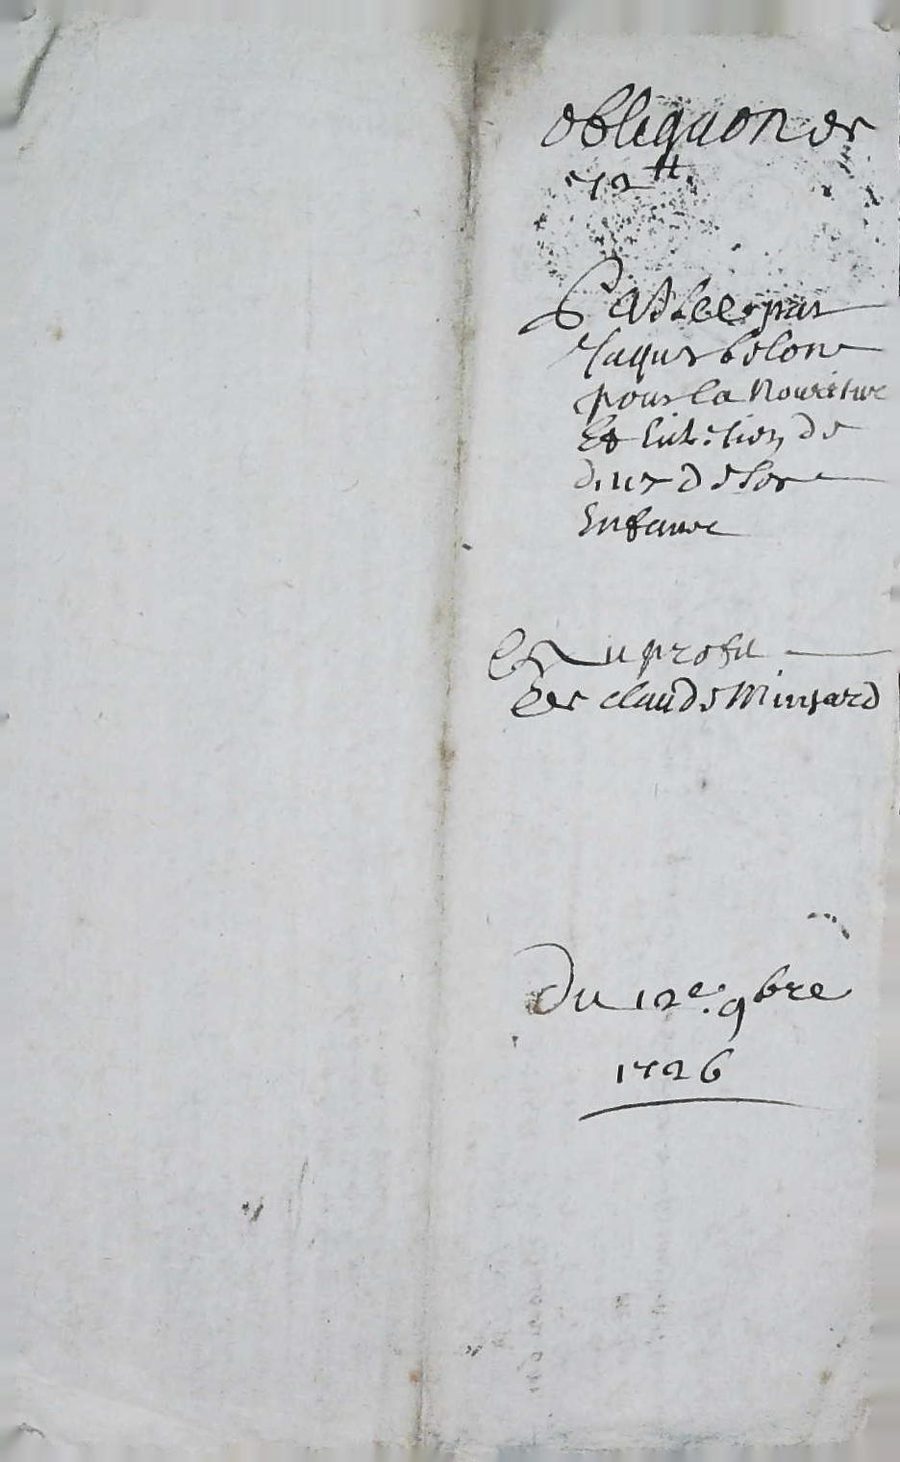 obligaon de
72 ₶
Passee par
Jaques belon
pour la Nouriture
Et Ent:tien de
deux de ses
Enfans
Et au profit
de claude Minjard
Du 12e. 9bre
1726